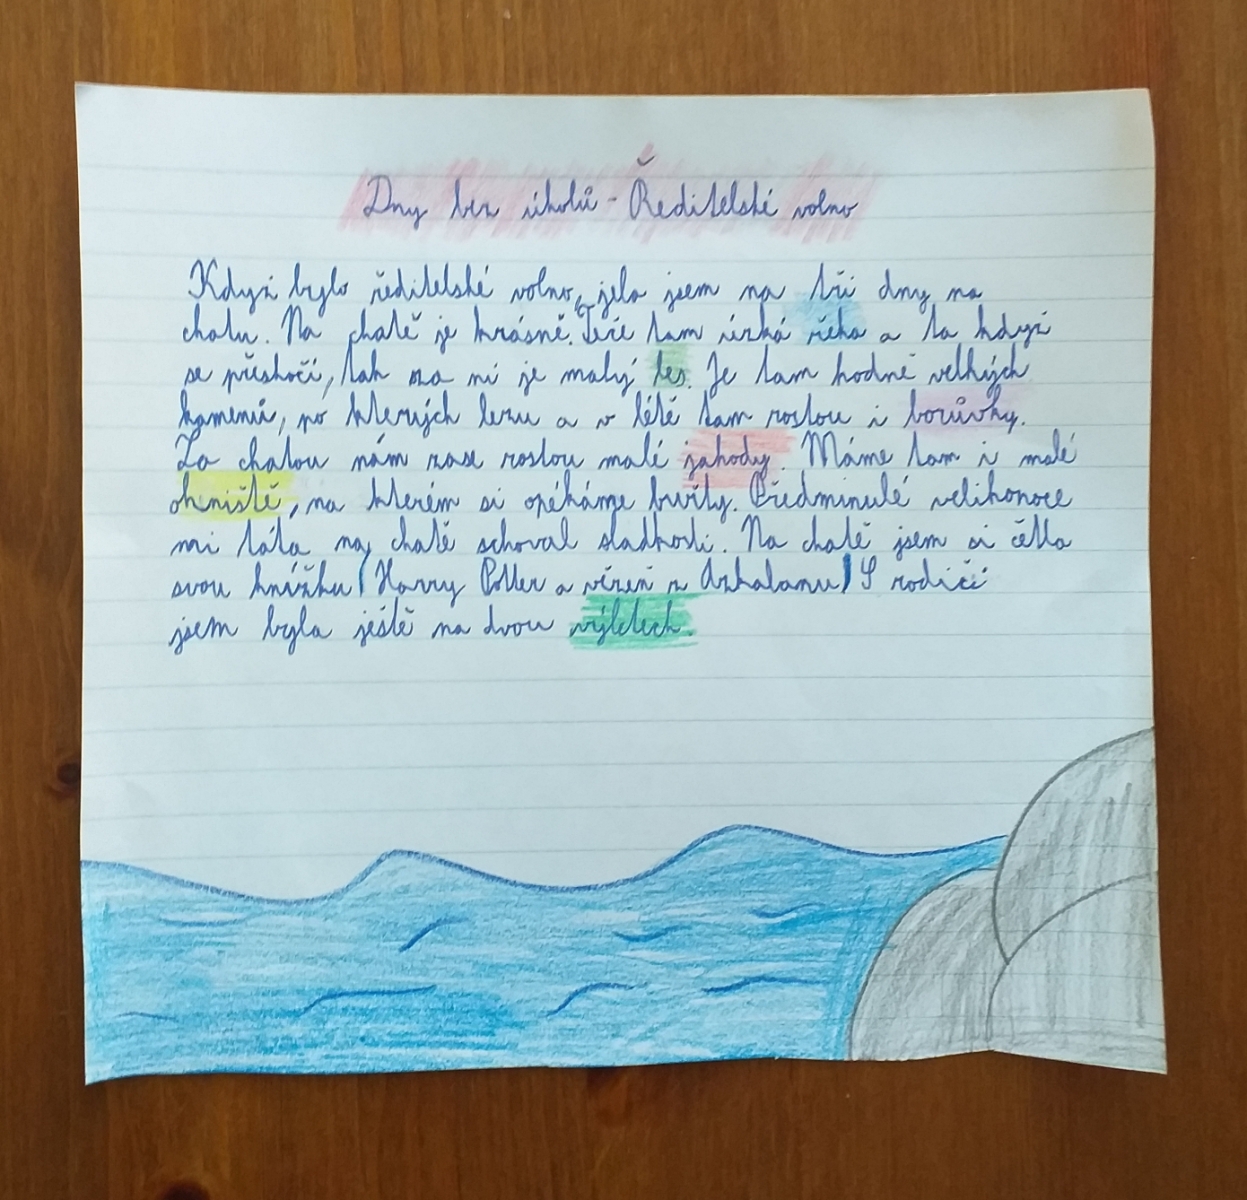 Dny bez úkolů - Ředitelské volno
Když bylo ředitelské volno, jela jsem na tři dny na
chatu. Na chatě je krásně. Teče tam úzká řeka a ta když
se přeskočí, tak za ní je malý les. Je tam hodně velkých
kamenů, po kterých lezu a v létě tam rostou i borůvky.
Za chatou nám zase rostou malé jahody. Máme tam i malé
ohniště, na kterém si opékáme buřty. Předminulé velikonoce
mi táta na chatě schoval sladkosti. Na chatě jsem si četla
svou knížku (Harry Potter a vězeň z Azkabanu) S rodiči
jsem byla ještě na dvou výletech.